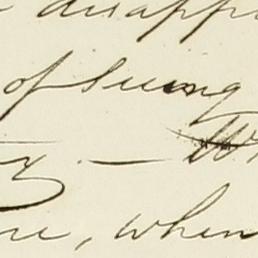 disapp
of seeing
— W
, when